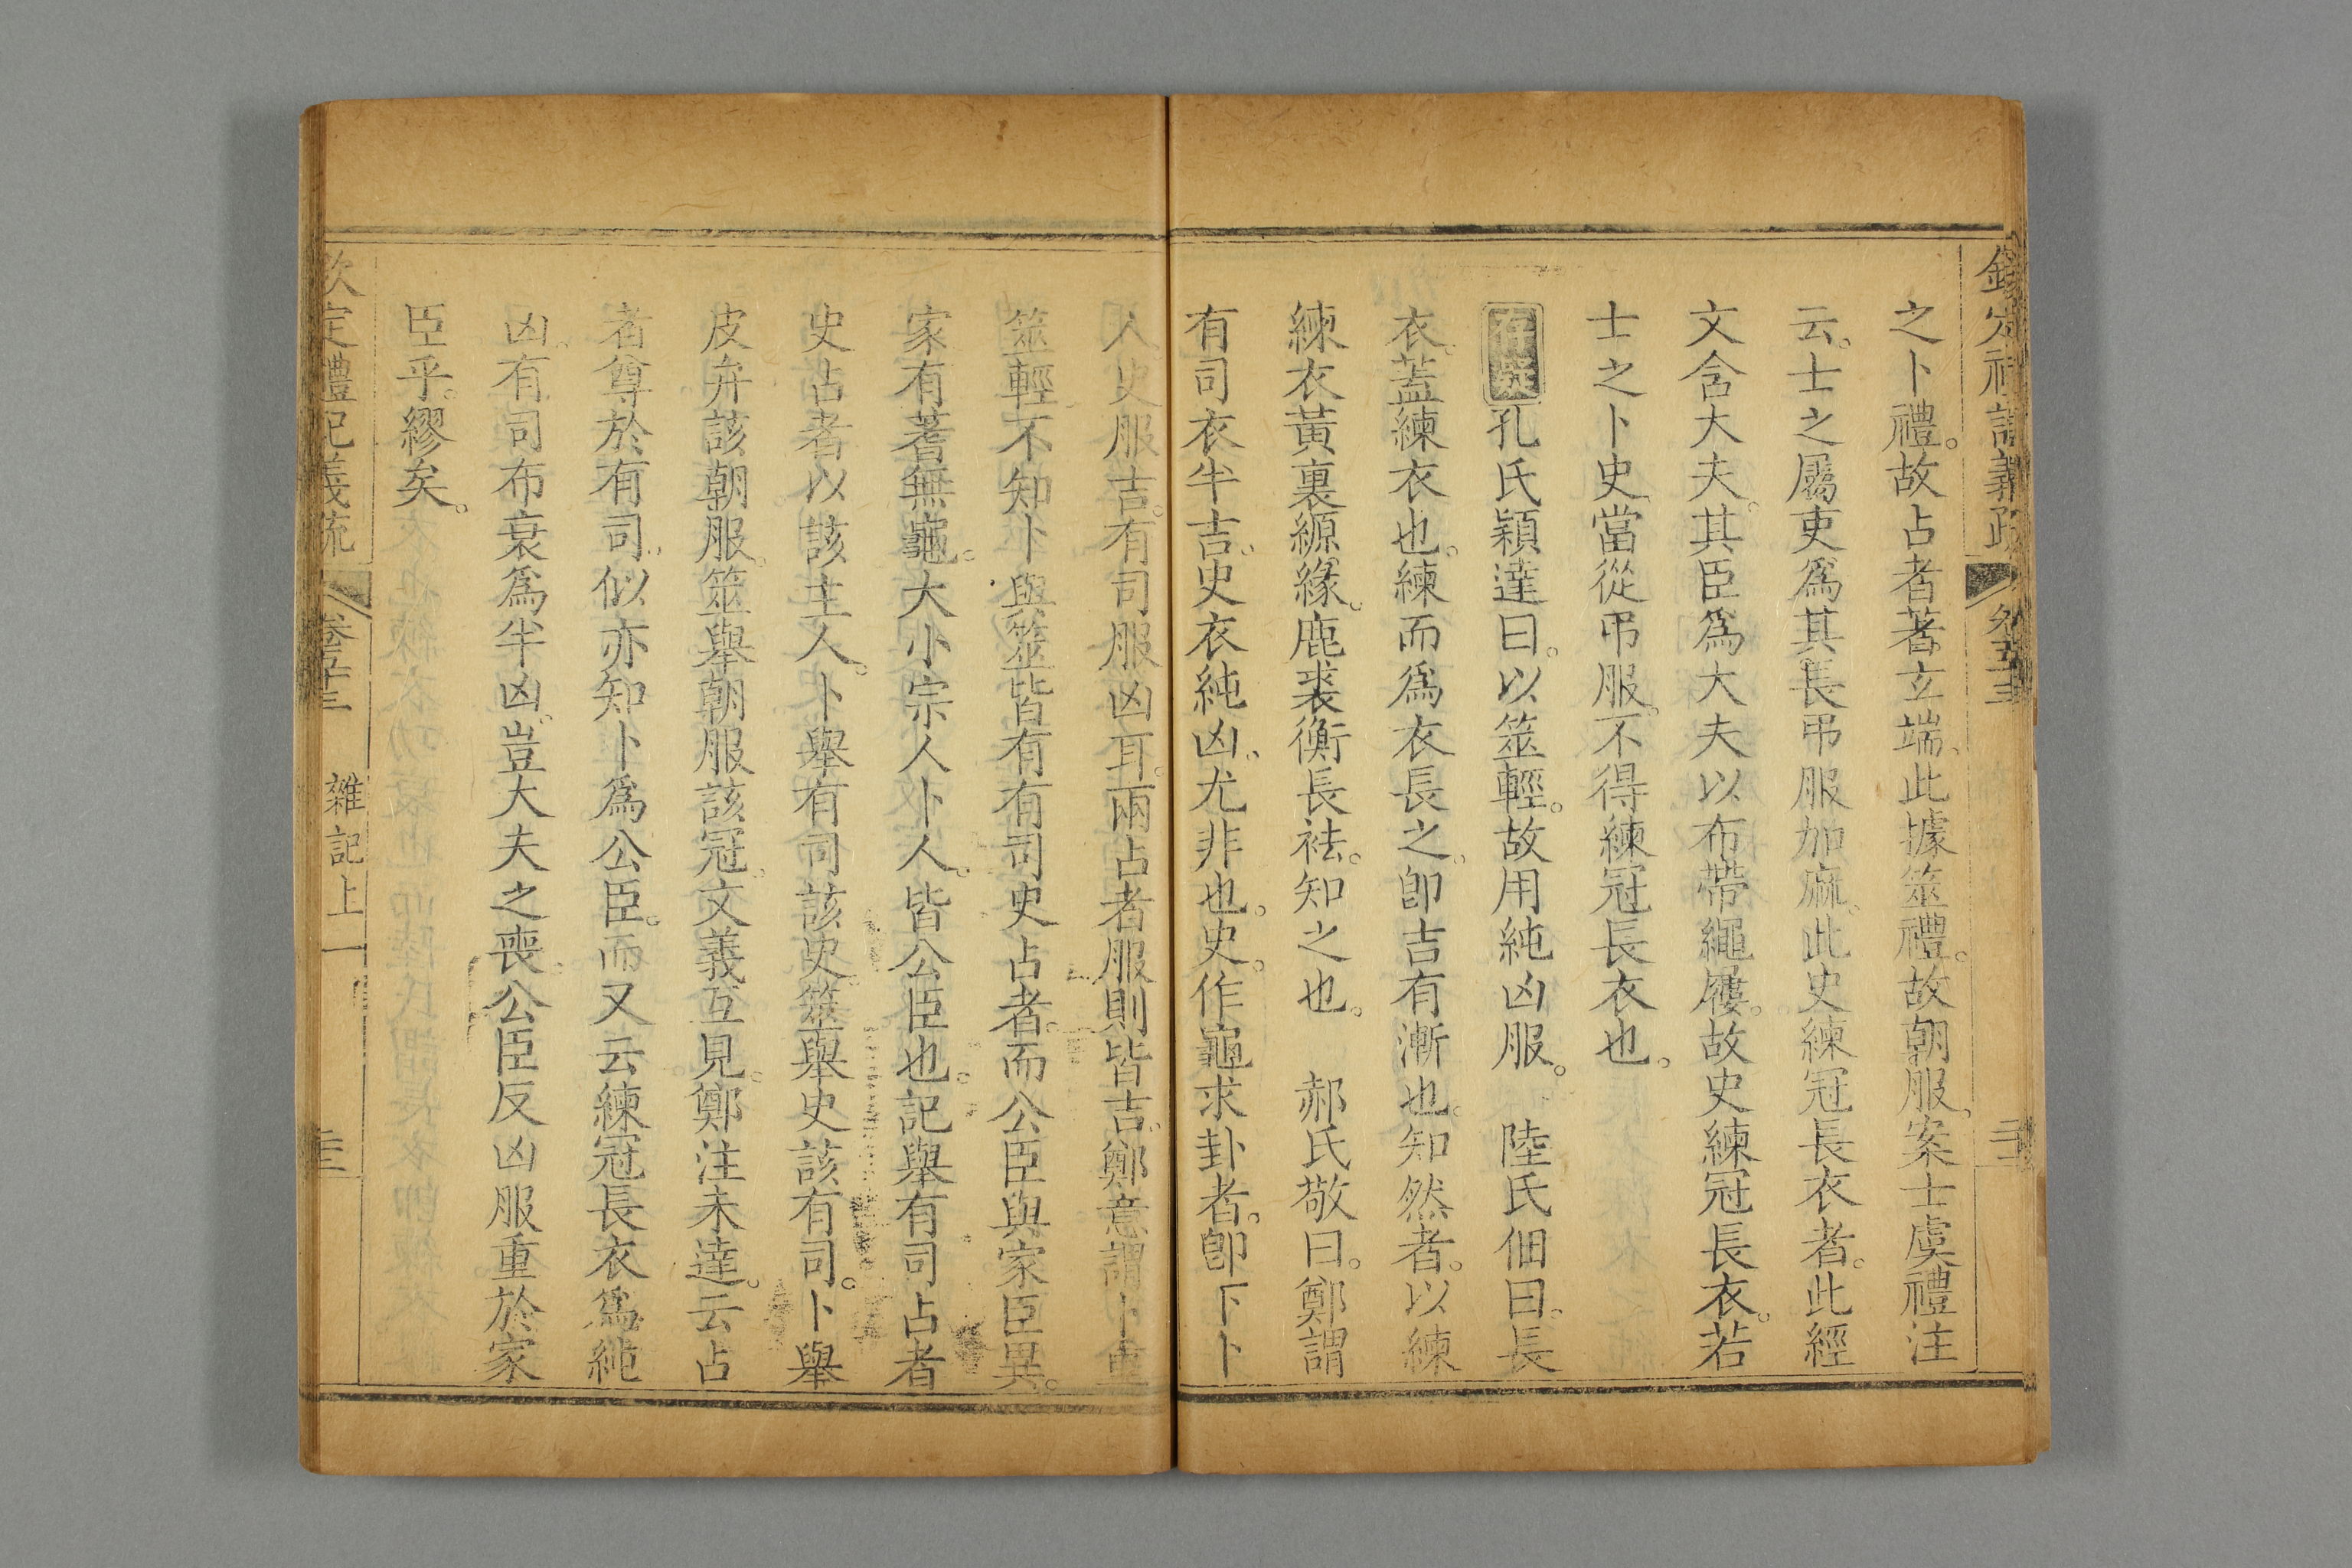 之卜禮。故占者著玄端、此據筮禮。故朝服、案士虞禮注
云。士之屬吏爲其長弔服加麻。此史練冠長衣者。此經
文含大夫。其臣爲大夫以布帶繩屨。故史練冠長衣。若
士之卜史、當從弔服。不得練冠長衣也。
存異 孔氏穎達曰。以筮輕。故用純凶服。 陸氏佃曰。長
衣。蓋練衣也。練而爲衣長之。卽吉有漸也。知然者。以練
練衣黃裏縓緣。鹿裘衡長袪。知之也。 郝氏敬曰。鄭謂
有司衣半吉、史衣純凶、尤非也。史。作龜求卦者。卽卜卜
人史服吉。有司服凶耳。兩占者服則皆吉、鄭意謂卜重
筮輕、不知卜與筮皆有有司史占者。而公臣與家臣異。
家有蓍無龜。大小宗人卜人。皆公臣也。記舉有司占者
史占者以該主人。卜舉有司該史。筮舉史該有司。卜舉
皮弁該朝服。筮舉朝服該冠。文義互見。鄭注未達。云占
者尊於有司、似亦知卜爲公臣。而又云練冠長衣爲純
凶。有司布衰爲半凶。豈大夫之喪。公臣反凶服重於家
臣乎。繆矣。
欽定禮記義疏 卷五十三 雜記上一